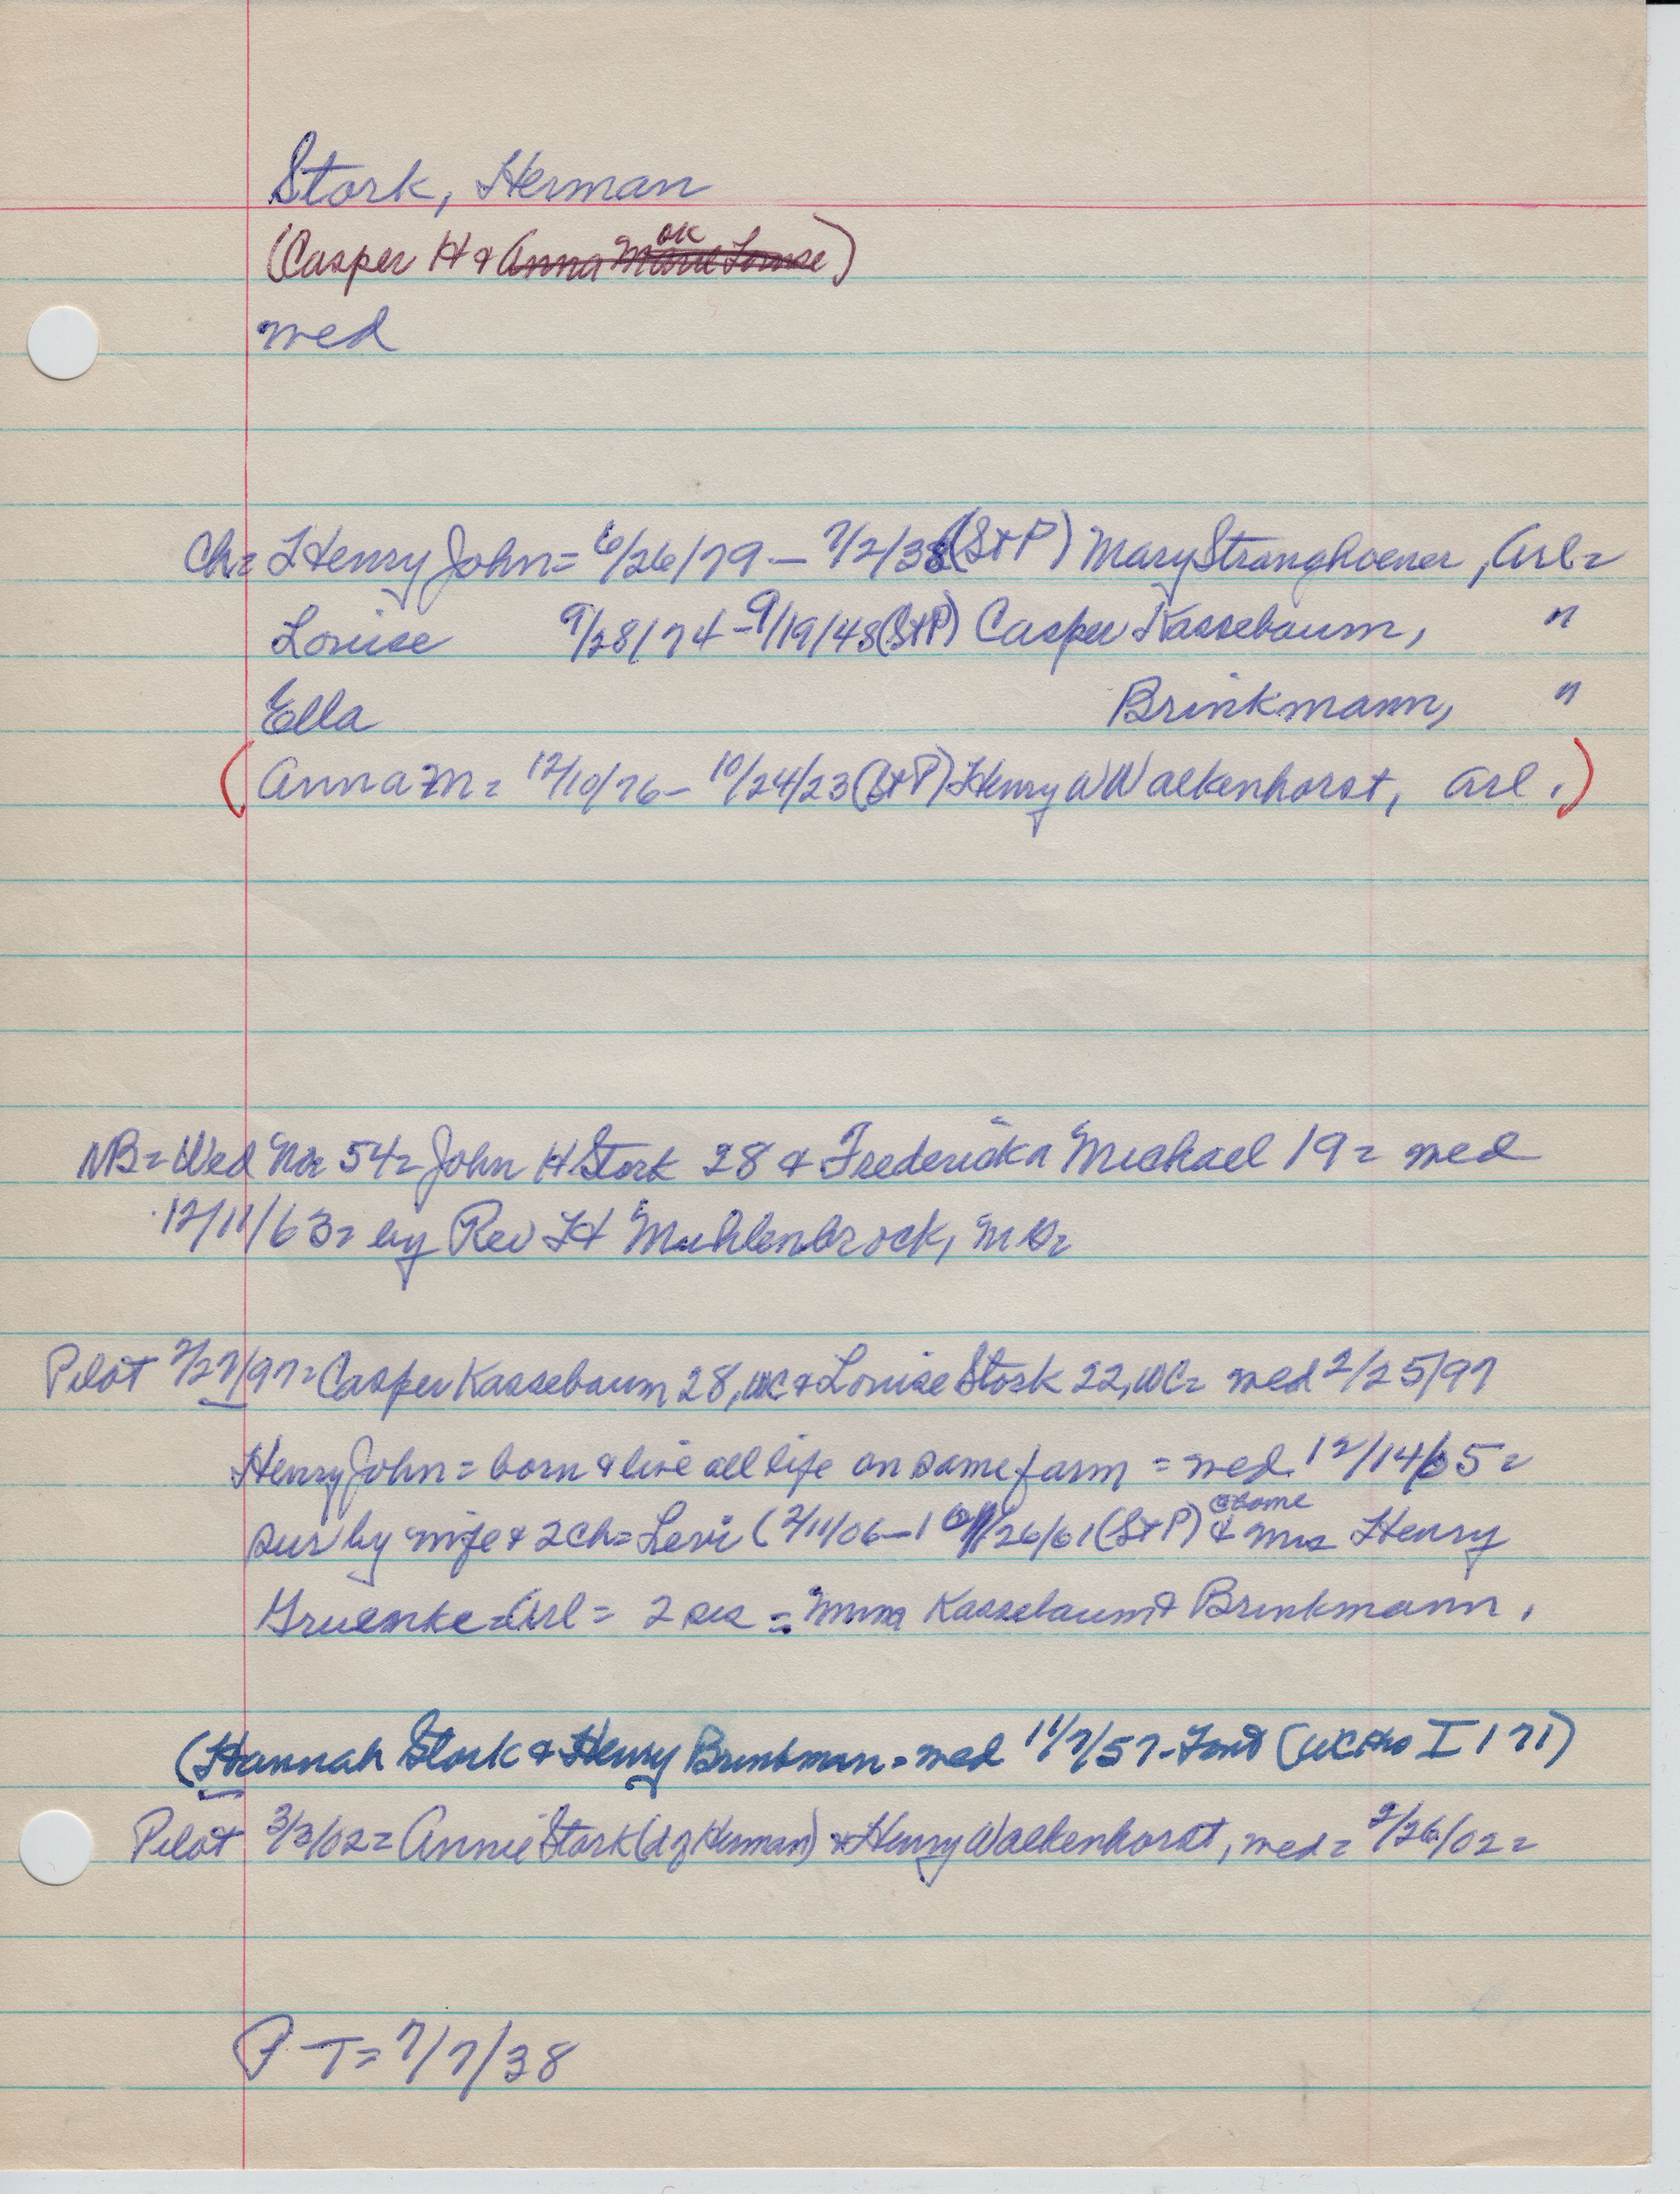 Stork, Herman
(Casper H & Anna Marie Louise) ok
med
Ch= Henry John= 6/26/79 – 7/2/38 (St P) Mary Stranghoener, Arl=
Louise 9/28/74 – 9/19/48 (St P) Casper Kassebaum, "
Ella Brinkmann, "
(Anna M= 12/10/76 – 10/24/23 (St P) Henry W Walkenhorst, Arl.)
NB= Wed No 54= John H Stork 28 & Fredericka Michael 19= med
12/11/63= by Rev H Muhlenbrock, MG=
Pilot 2/27/97= Casper Kassebaum 28, WC & Louise Stork 22, WC= med 2/25/97
Henry John= born & live all life on same farm = med. 12/14/05=
sur by wife & 2 ch= Levi (2/11/06 – 26/61 (St P) @ home & Mrs Henry
Gruenke Arl= 2 sis = Mmes Kassebaum & Brinkmann.
(Hannah Stork & Henry Brinkman= med 11/7/57 - (WC I 171)
Pilot 3/3/02= Annie Stork (d of Herman) & Henry Walkenhorst, med= 2/26/02=
P-T= 7/7/38